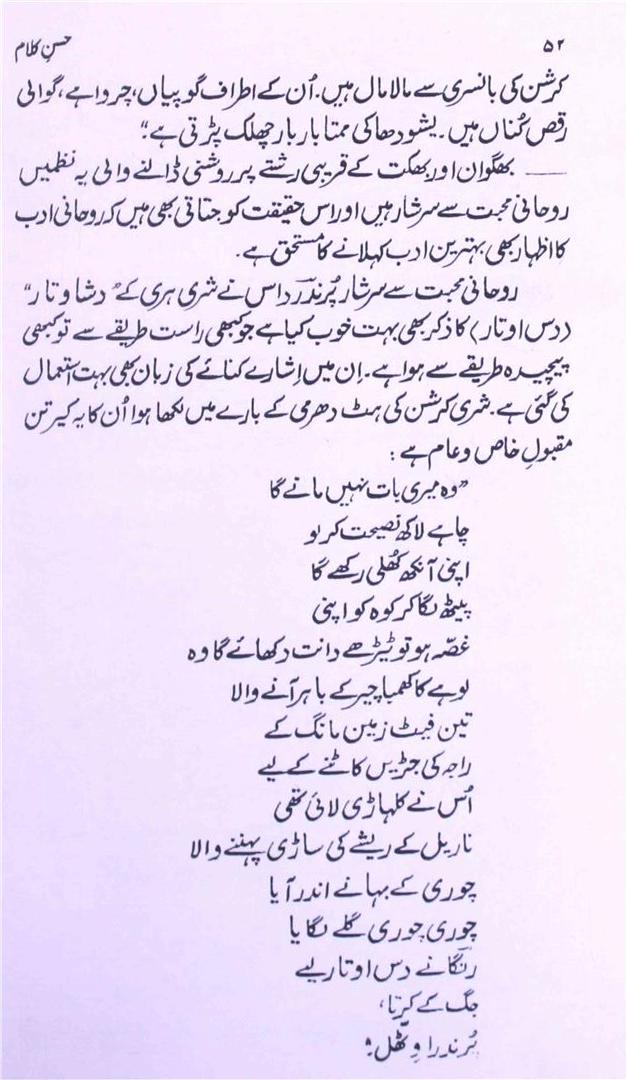 ۵۲ حسنِ کلام
کرشن کی بانسری سے مالا مال ہیں۔ اُن کے اطراف گوپیاں، چرواہے، گوالی
رقص کُناں ہیں۔ یشودھا کی ممتا بار بار چھلک پڑتی ہے"
—— بھگوان اور بھکت کے قریبی رشتے پر روشنی ڈالنے والی یہ نظمیں
روحانی محبت سے سرشار ہیں اور اس حقیقت کو جتاتی بھی ہیں کہ روحانی ادب
کا اظہار بھی بہترین ادب کہلانے کا مستحق ہے۔
روحانی محبت سے سرشار پُرندر داس نے شری ہری کے "دشاوتار"
(دس اوتار) کا ذکر بھی بہت خوب کیا ہے جو کبھی راست طریقے سے تو کبھی
پیچیدہ طریقے سے ہوا ہے۔ اِن میں اِشارے کنائے کی زبان بھی بہت استعمال
کی گئی ہے۔ شری کرشن کی ہٹ دھرمی کے بارے میں لکھا ہوا اُن کا یہ کیرتن
مقبولِ خاص و عام ہے :
"وہ میری بات نہیں مانے گا
چاہے لاکھ نصیحت کر لو
اپنی آنکھ کھُلی رکھے گا
پیٹھ لگا کر کوہ کو اپنی
غصّہ ہو تو ٹیڑھے دانت دکھائے گا وہ
لوہے کا کھمبا چیر کے باہر آنے والا
تین فیٹ زمین مانگ کے
راجہ کی جڑیں کاٹنے کے لیے
اُس نے کلہاڑی لائی تھی
ناریل کے ریشے کی ساڑی پہننے والا
چوری کے بہانے اندر آیا
چوری چوری گلے لگایا
رنگا نے دس اوتار لیے
جگ کے کرتا،
پُرندرا وِٹھّل"